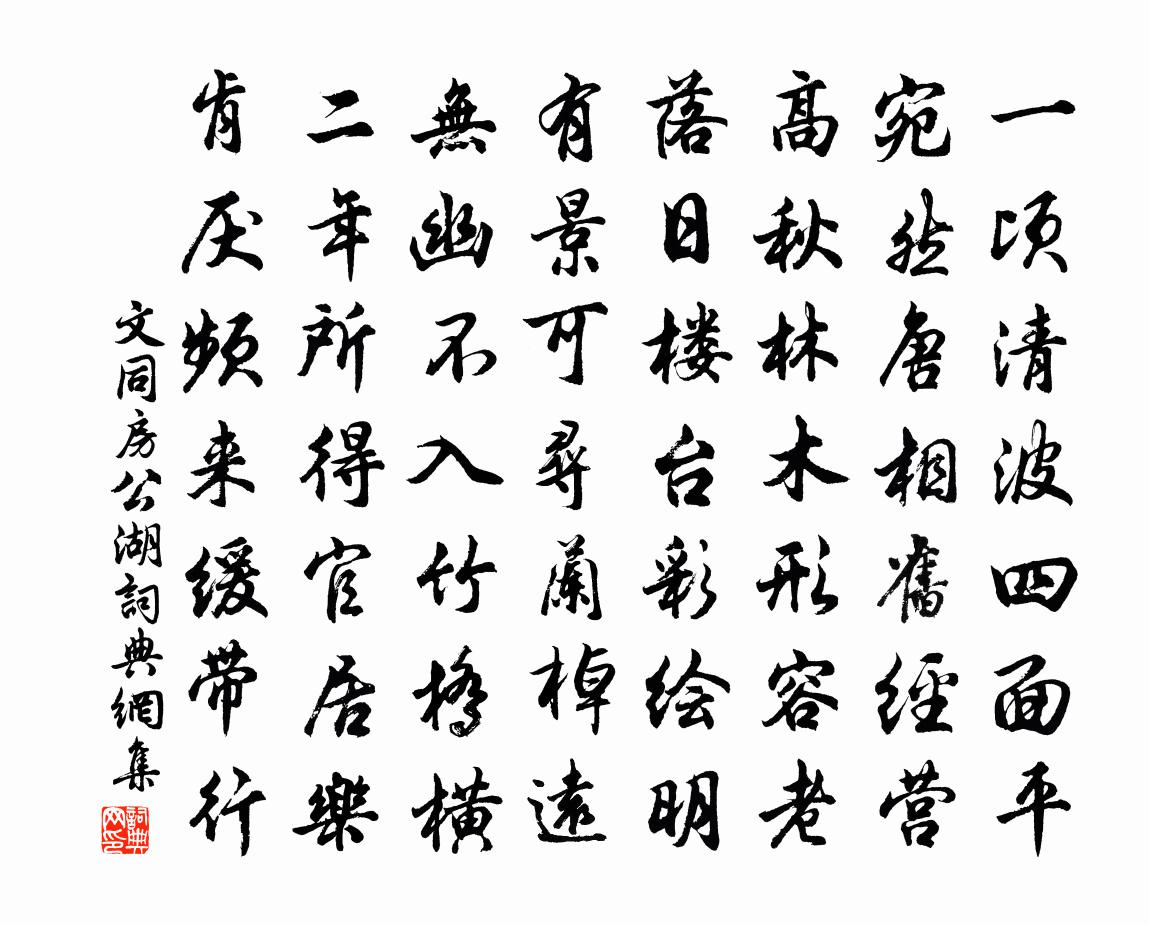 一顷清波四面平
宛然唐相舊經营
高秋林木形容老
落日楼台彩绘明
有景可尋蘭棹遠
無幽不入竹橋横
二年所得官居樂
肯厌频来缓带行
文同房公湖詞典網集
詞典网印